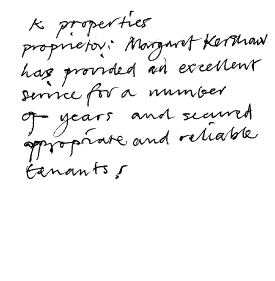 K properties
proprietor: Margaret Kershaw
has provided an excellent
service for a number
of years and secured
appropriate and reliable
tenants.